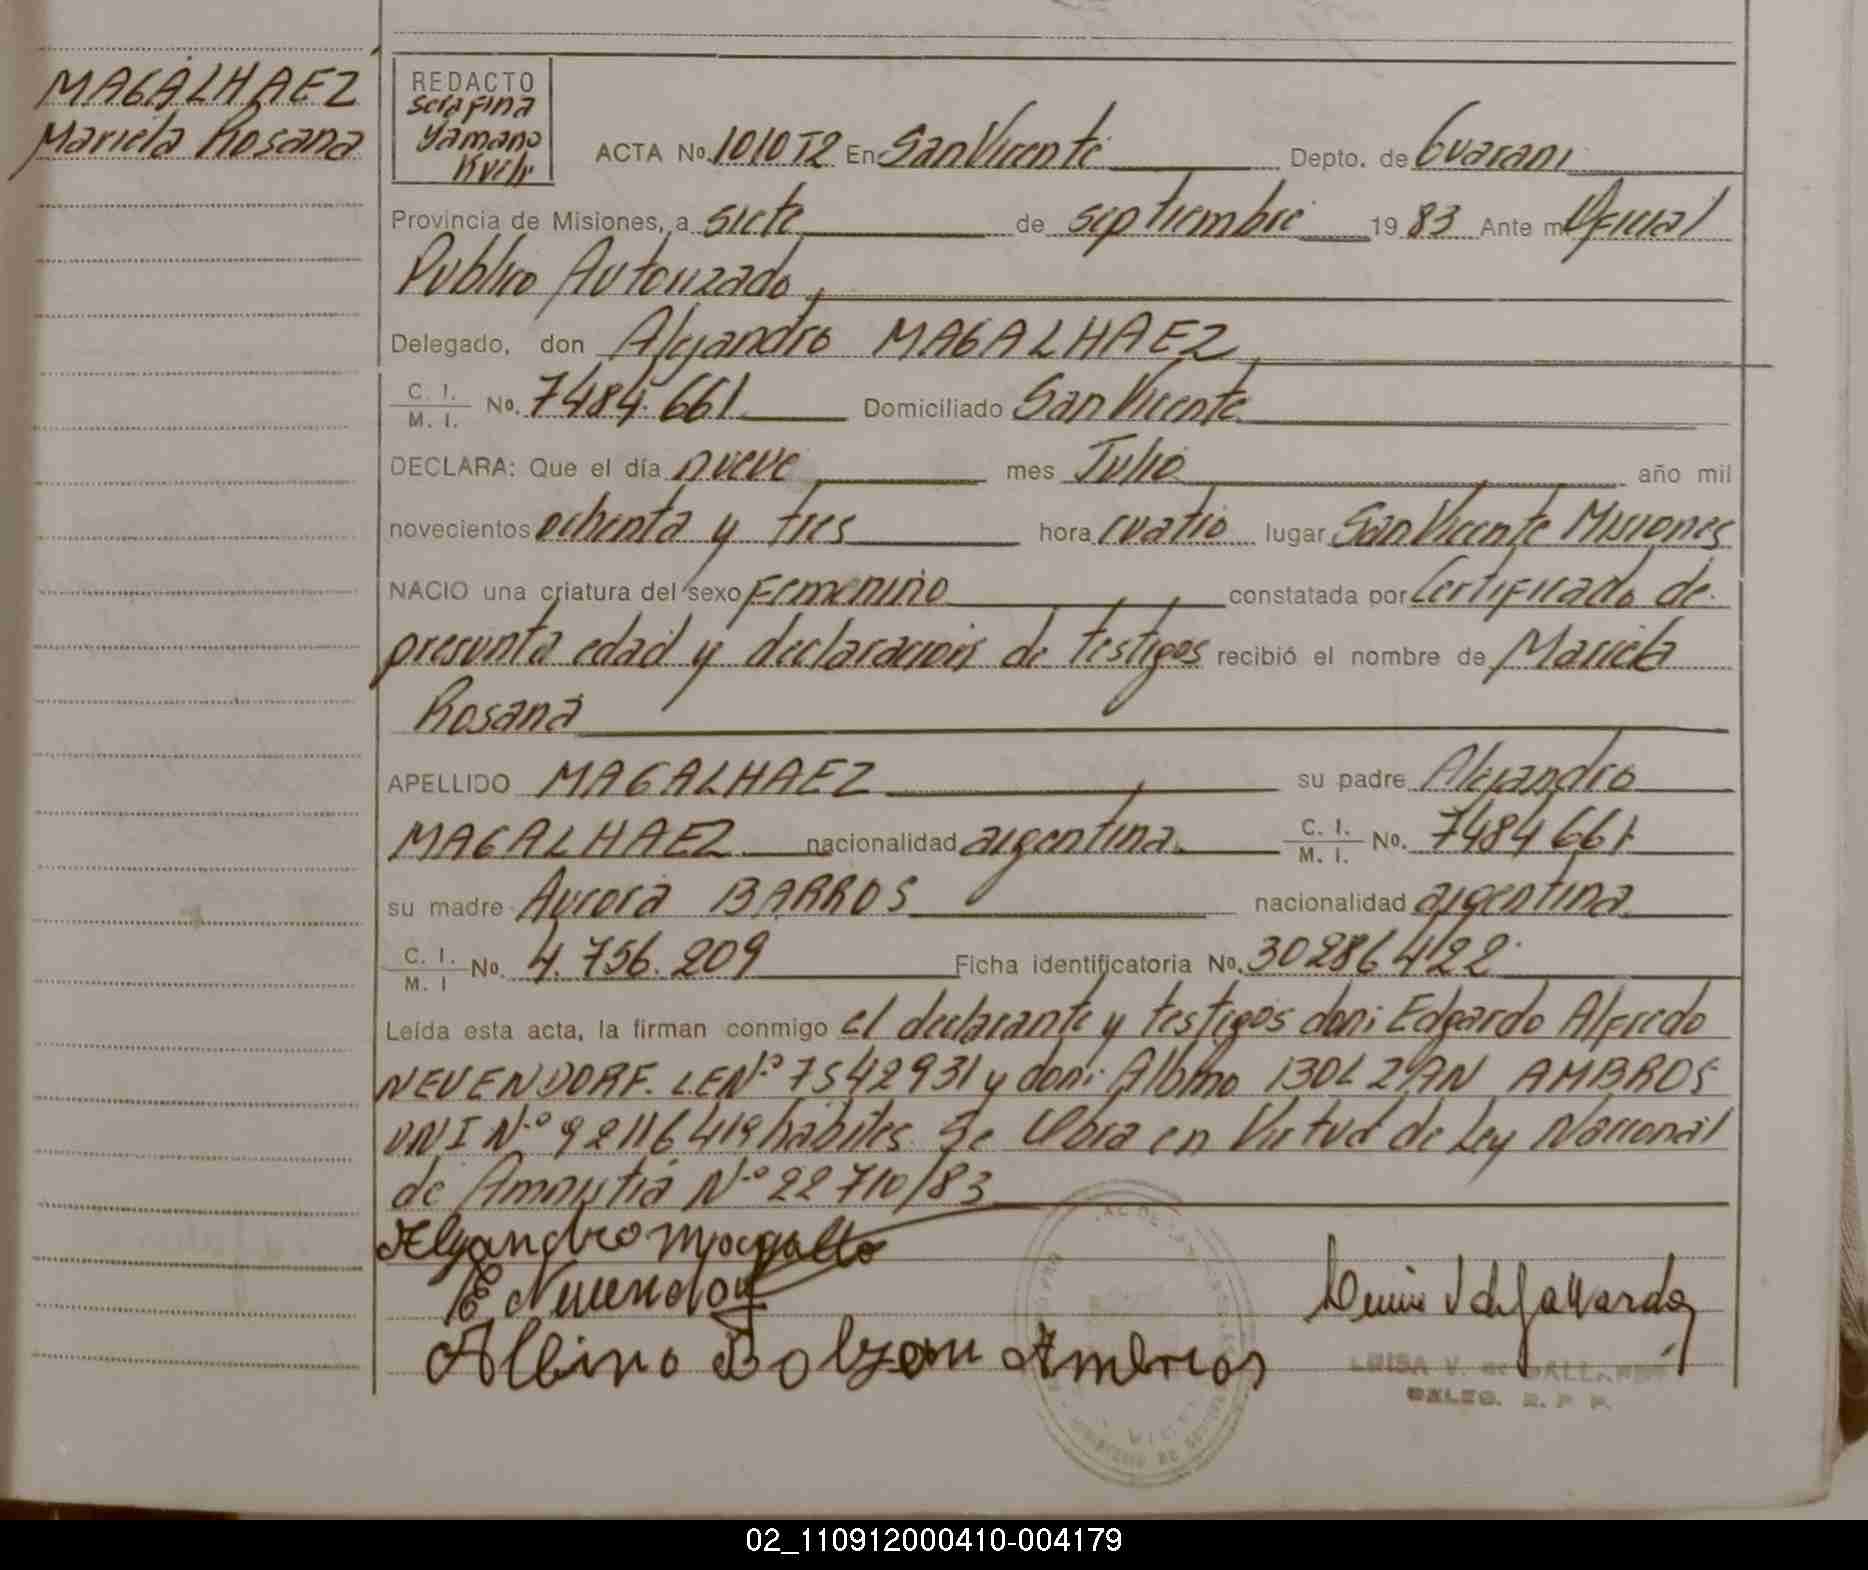 MAGALHAEZ
Mariela Rosana
REDACTO
Serafina
Yamano
ACTA No. 1010 T2 En San Vicente Depto. de Guarani
Provincia de Misiones, a siete de septiembre 1983 Ante mi Oficial
Publico Autorizado,
Delegado, don Alejandro MAGALHAEZ,
C. I.
M. I. No. 7484.661 Domiciliado San Vicente
DECLARA: Que el día nueve mes Julio año mil
novecientos ochenta y tres hora cuatro lugar San Vicente Misiones
NACIO una criatura del sexo Femenino constatada por Certificado de
presunta edad y declaracion de testigos recibió el nombre de Mariela
Rosana
APELLIDO MAGALHAEZ su padre Alejandro
MAGALHAEZ nacionalidad argentina. C. I.
M. I. No. 7484661
su madre Aurora BARROS nacionalidad argentina
C. I.
M. I No. 4.756.209 Ficha identificatoria No. 30286422
Leída esta acta, la firman conmigo el declarante y testigos don: Edgardo Alfredo
NEUENDORF. LE Nº 7542931 y don: Albino BOLZAN AMBROS
DNI Nº 92116419 habiles. Se Obra en Virtud de Ley Nacional
de Amnistia Nº 22710/83
Alejandro
E Neuendorf
Albino Bolzan Ambros
Luisa V de Gallardo
LUISA V. de GALLARDO
02_110912000410-004179